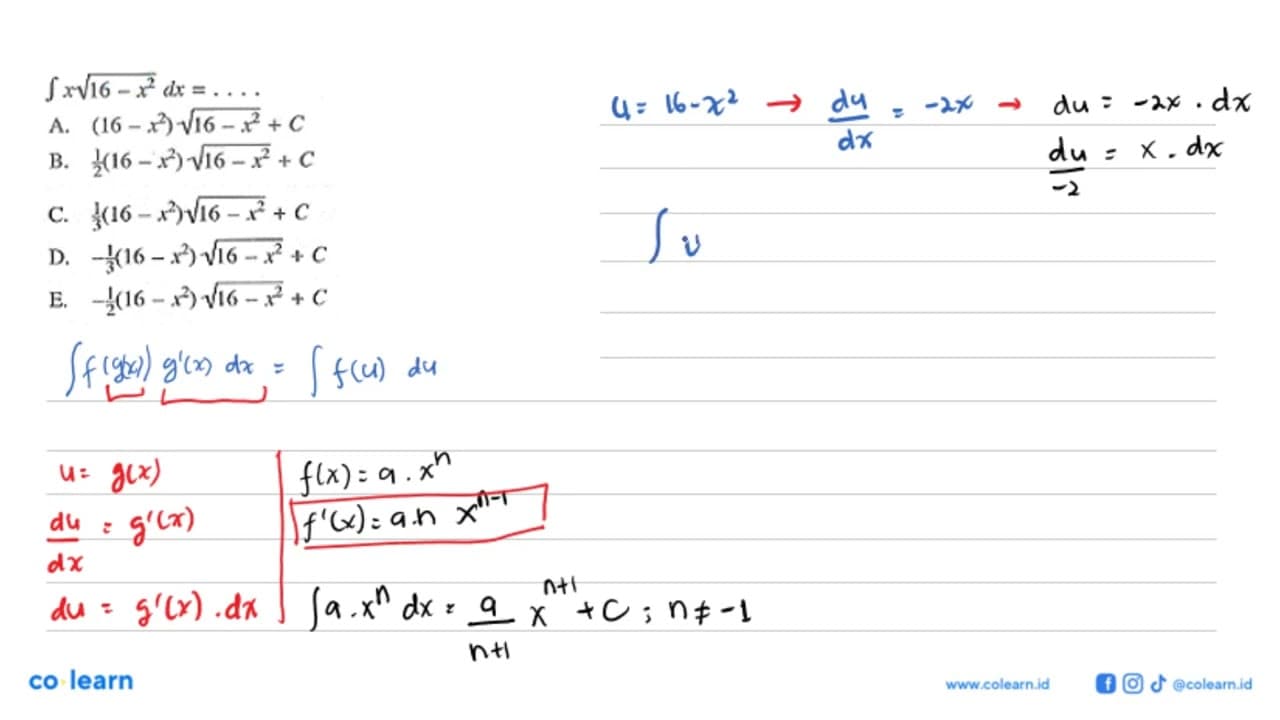 ∫ x√(16 – x²) dx = . . . .
A. (16 – x²)√(16 – x²) + C
B. ½(16 – x²)√(16 – x²) + C
C. ⅓(16 – x²)√(16 – x²) + C
D. –⅓(16 – x²)√(16 – x²) + C
E. –½(16 – x²)√(16 – x²) + C
u = 16 - x² → du/dx = -2x → du = -2x . dx
du/-2 = x . dx
∫ u
∫ f(g(x)) g'(x) dx = ∫ f(u) du
u = g(x)
du/dx = g'(x)
du = g'(x) . dx
f(x) = a . xⁿ
f'(x) = a.n xⁿ⁻¹
∫ a . xⁿ dx = a/(n+1) xⁿ⁺¹ + C ; n ≠ -1
co learn
www.colearn.id
@colearn.id